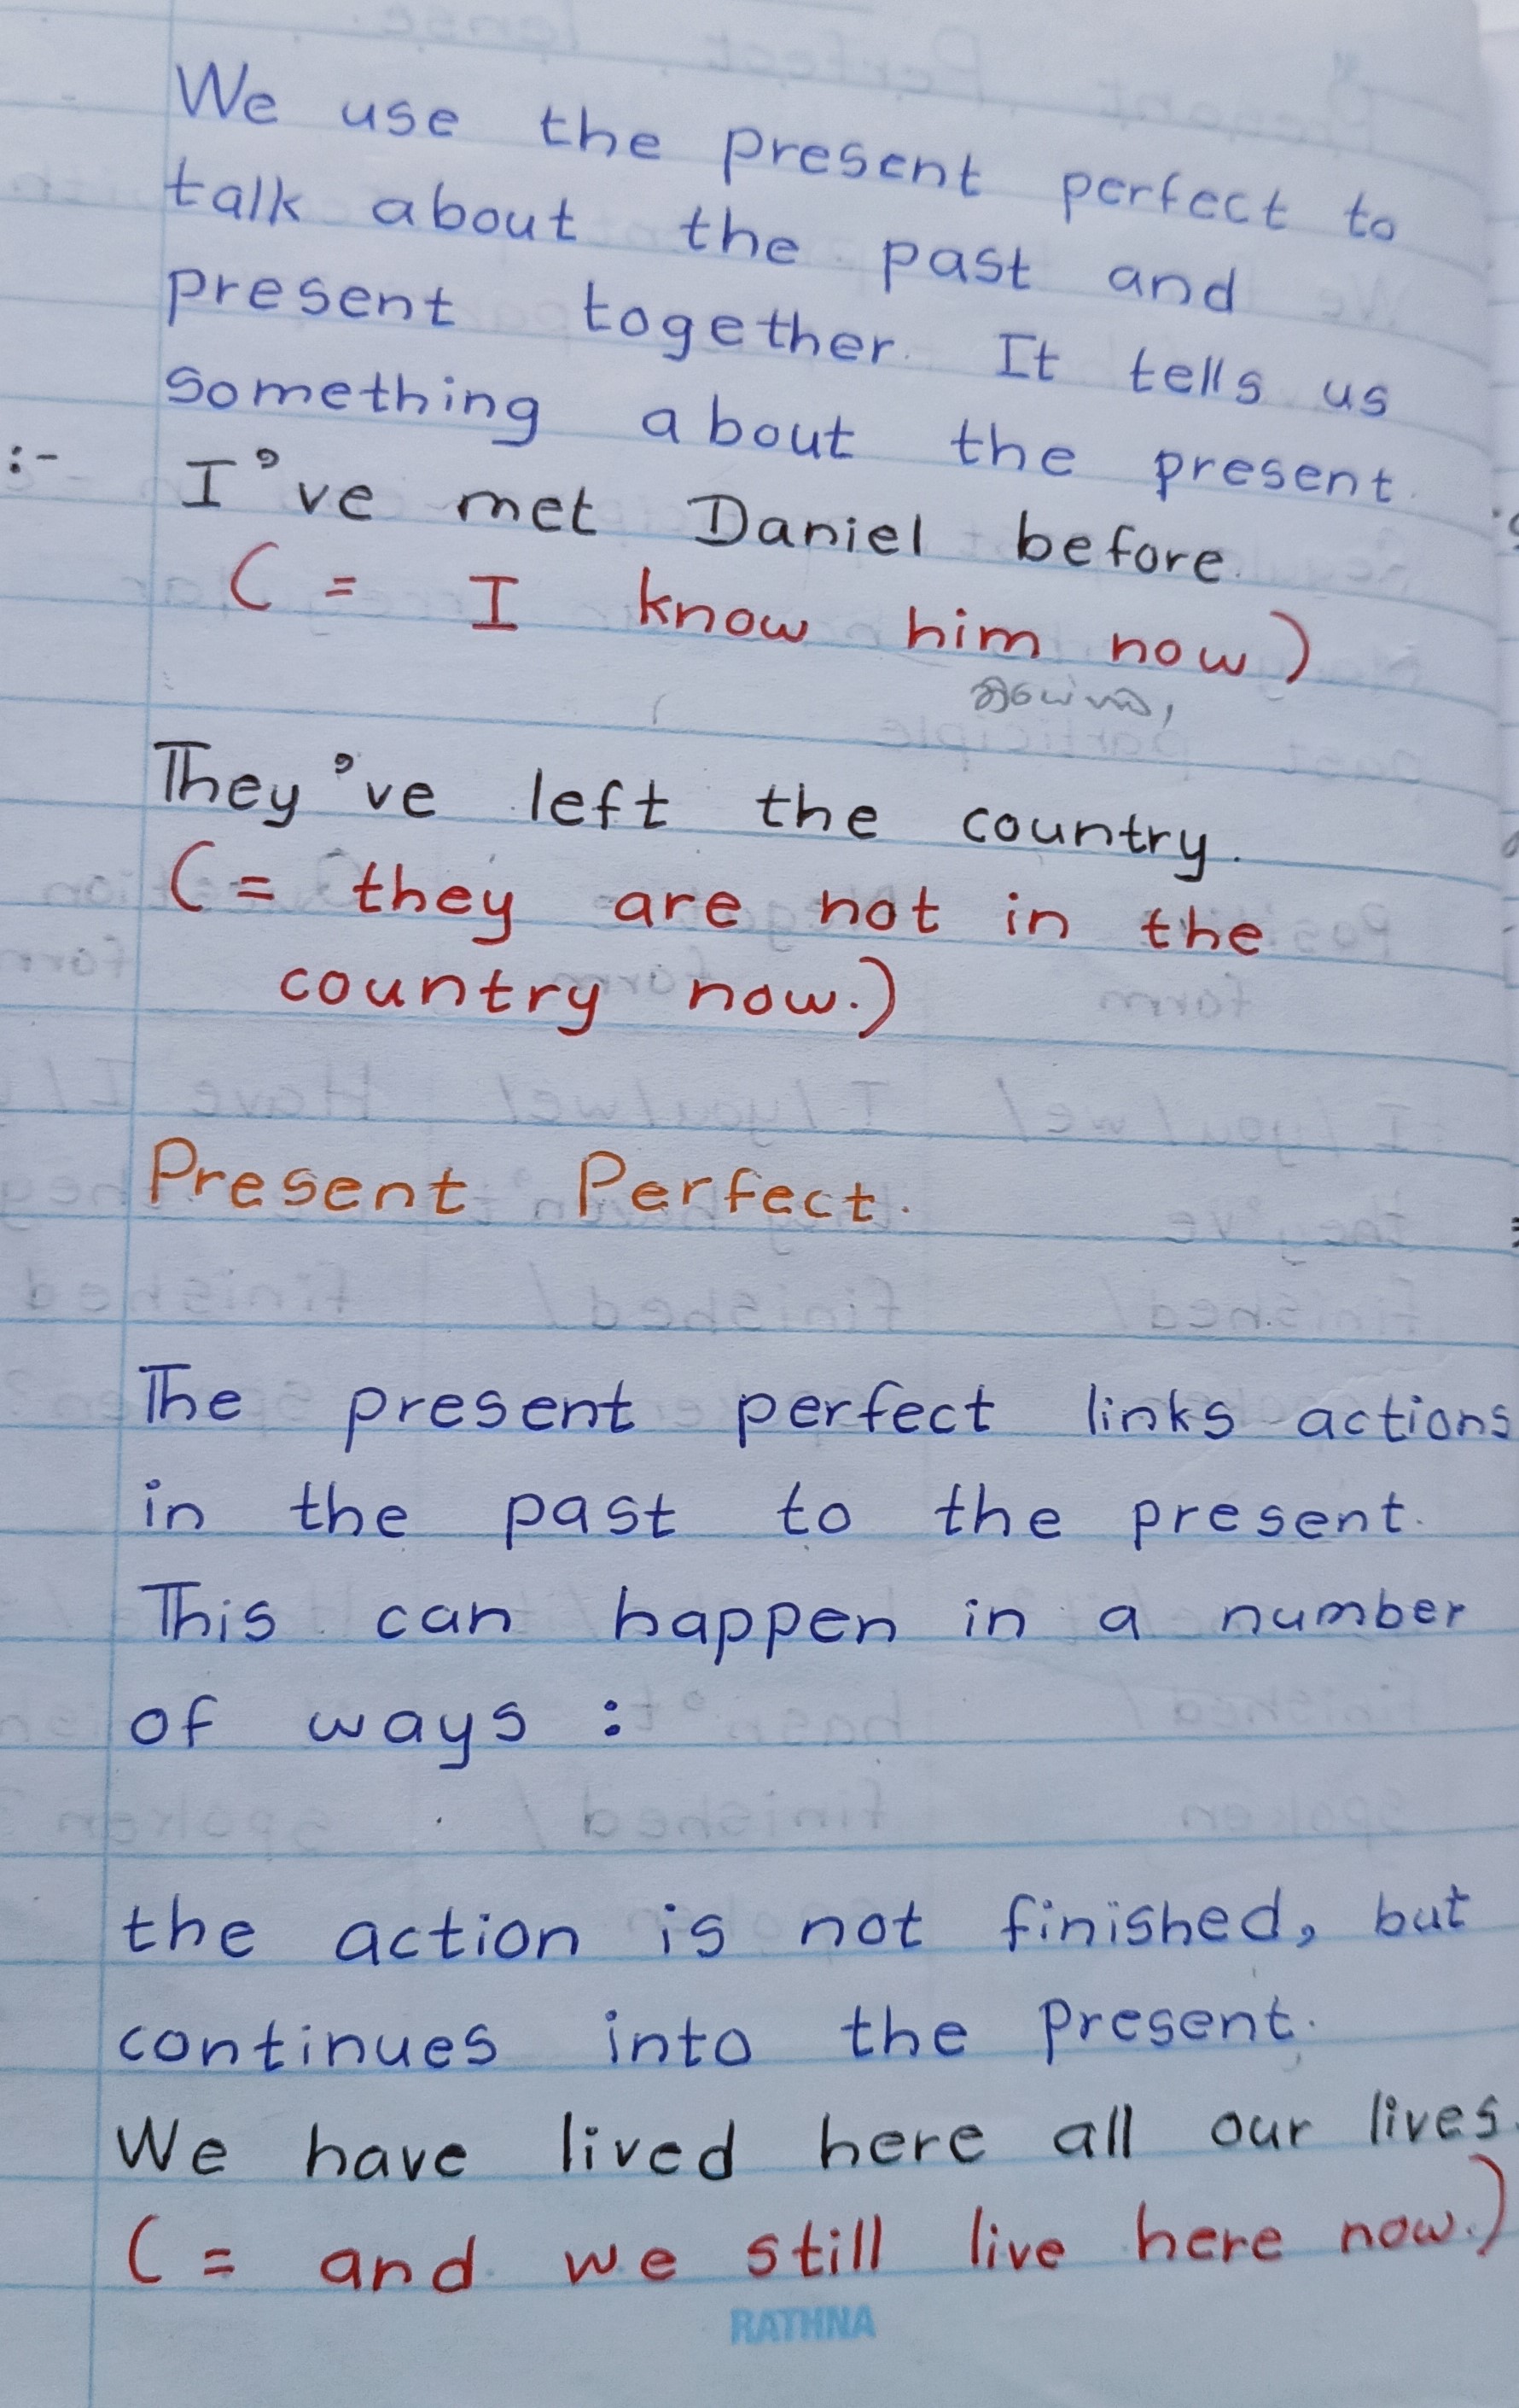 We use the present perfect to
talk about the past and
present together. It tells us
something about the present.
:- I've met Daniel before.
(= I know him now)
They've left the country.
(= they are not in the
country now.)
Present Perfect.
The present perfect links actions
in the past to the present.
This can happen in a number
of ways :
the action is not finished, but
continues into the present.
We have lived here all our lives.
(= and we still live here now.)
RATHNA